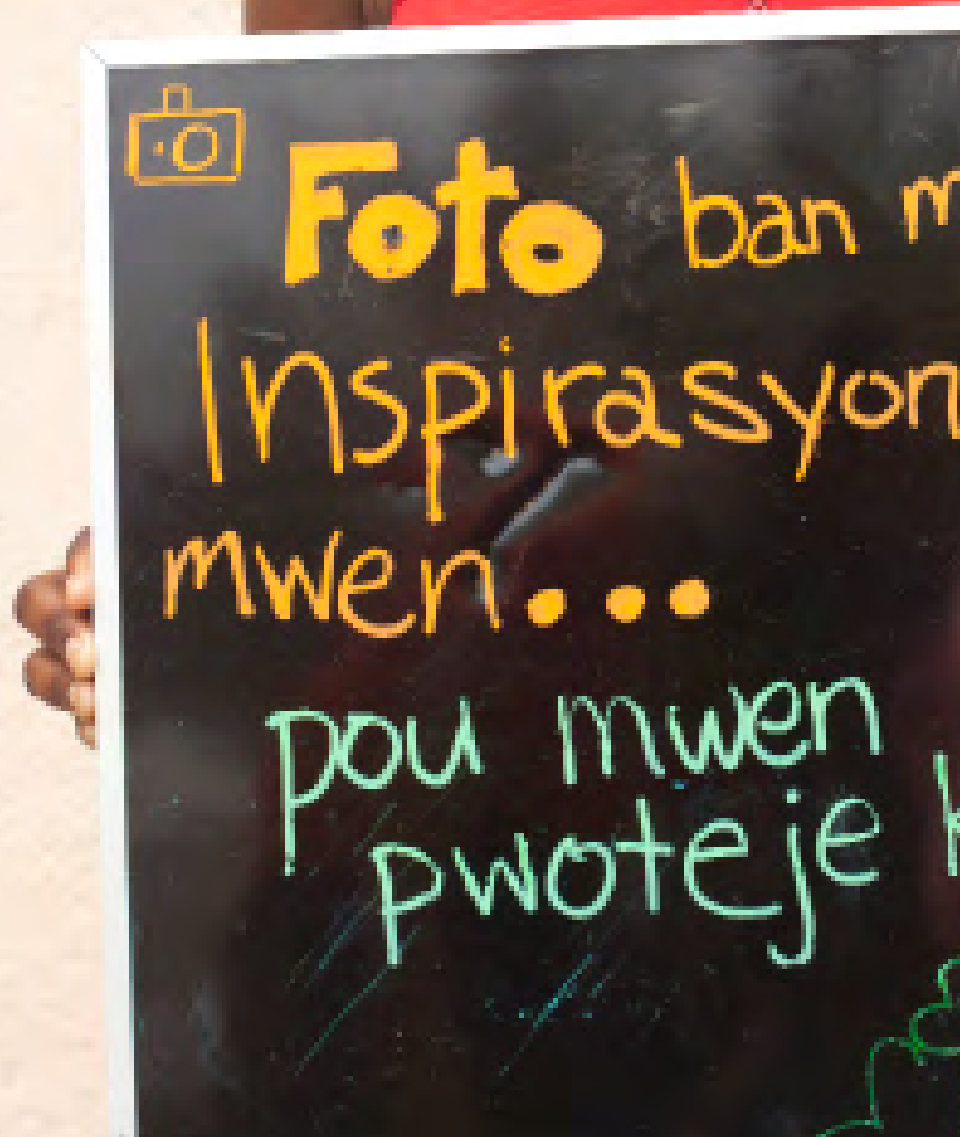 Foto ban
Inspirasyon
mwen...
pou mwen
pwoteje